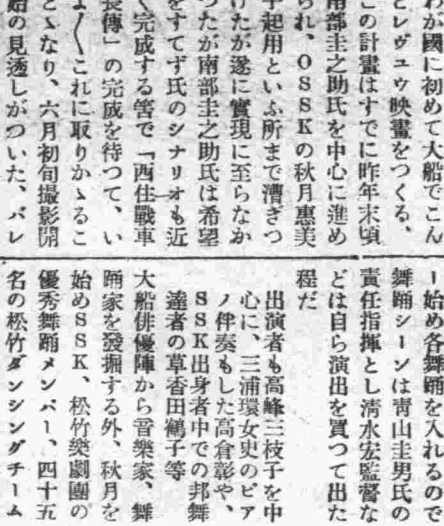 わが國に初めて大船でこん
どレヴユウ映畫をつくる、
この計畫はすでに昨年末頃
南部圭之助氏を中心に進め
られ、OSSKの秋月惠美
子起用といふ所まで漕ぎつ
けたが遂に實現に至らなか
つたが南部圭之助氏は希望
をすてず氏のシナリオも近
く完成する筈で「西住戰車
長傳」の完成を待つて、い
よ〱これに取りかゝるこ
とゝなり、六月初旬撮影開
始の見透しがついた、バレ
ー始め各舞踊を入れるので
舞踊シーンは靑山圭男氏の
責任指揮とし清水宏監督な
どは自ら演出を買つて出た
程だ
出演者も高峰三枝子を中
心に、三浦環女史のピア
ノ伴奏もした高倉彰や、
SSK出身者中での邦舞
達者の草香田鶴子等
大船俳優陣から音樂家、舞
踊家を發掘する外、秋月を
始めSSK、松竹樂劇團の
優秀舞踊メンバー、四十五
名の松竹ダンシングチーム